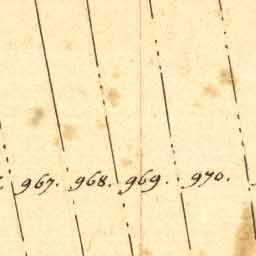 967. 968. 969. 970.